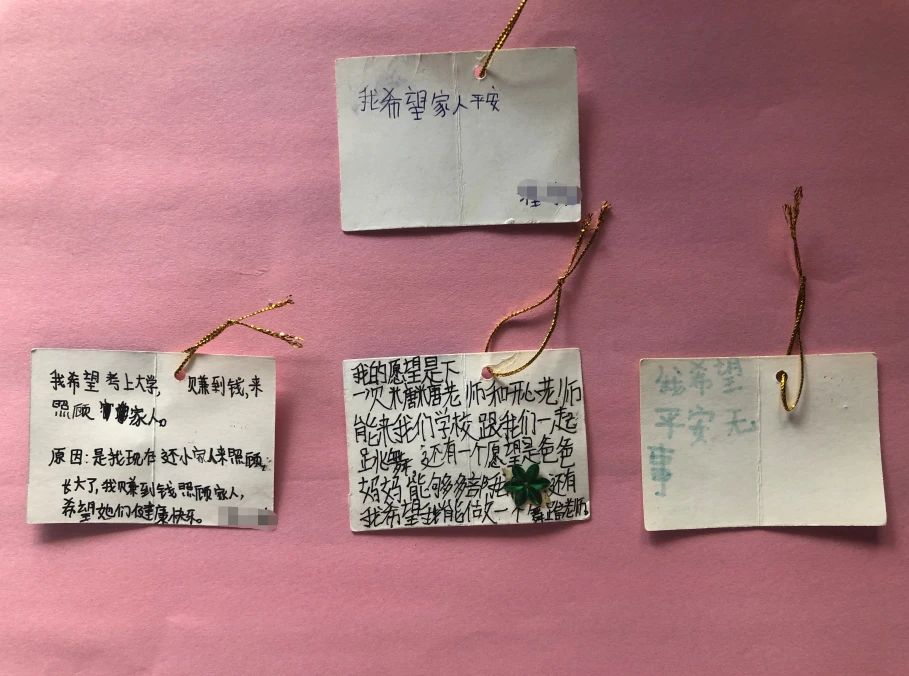 我希望家人平安
我希望考上大学，赚到钱，来
照顾家人。
原因：是我现在还小家人来照顾，
长大了，我赚到钱照顾家人，
希望她们健康快乐。
我的愿望是下
一次糖糖老师和开心老师
能来我们学校跟我们一起
跳舞，还有一个愿望是爸爸
妈妈，能够多陪 还有
我希望我能做一个舞蹈老师。
我希望
平安无
事